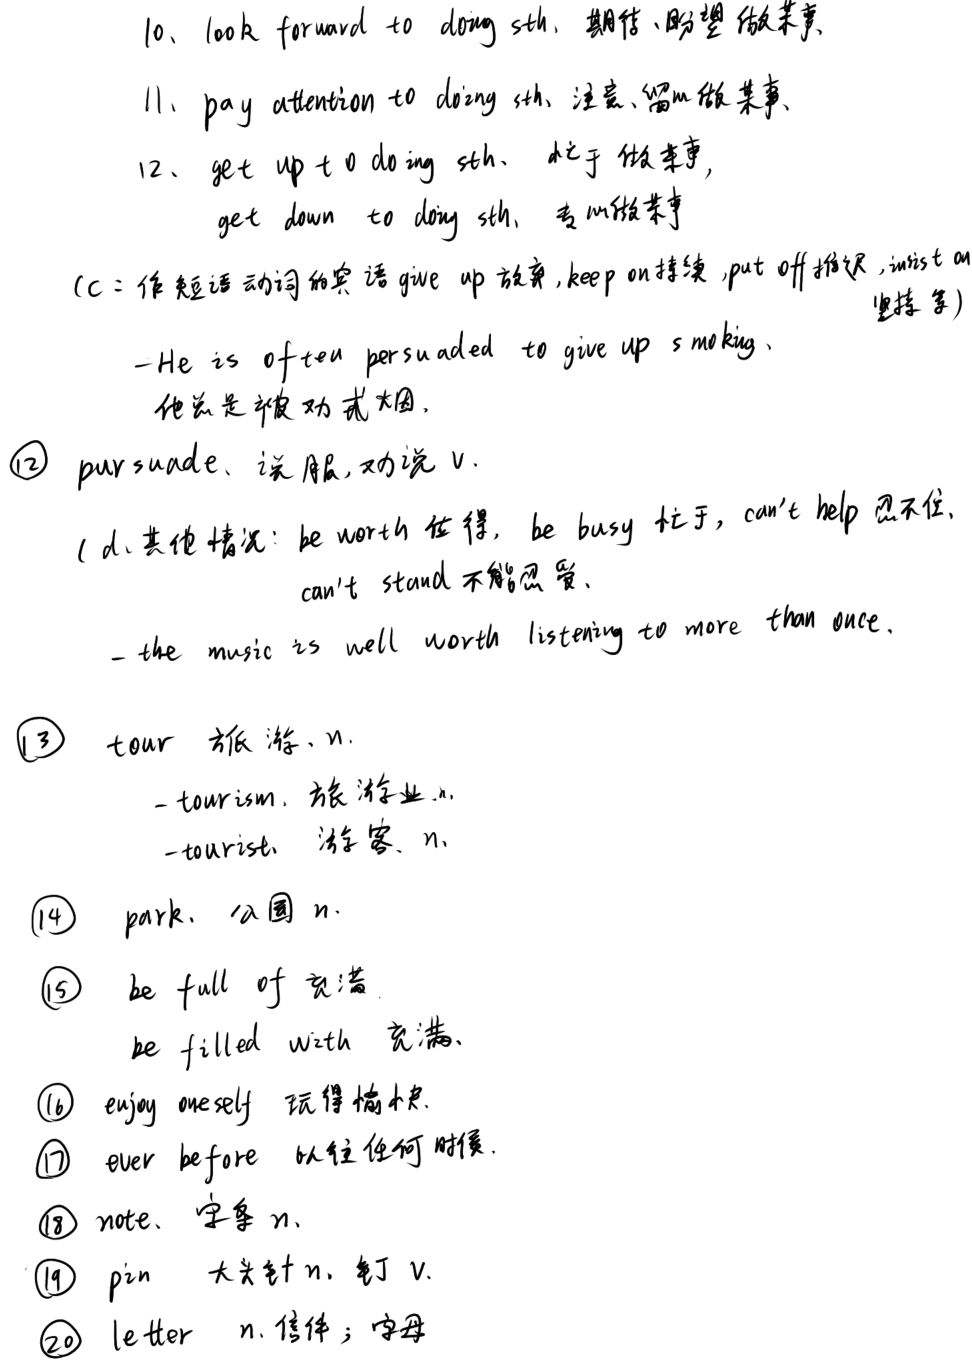 10、look forward to doing sth. 期待、盼望做某事.
11、pay attention to doing sth、注意、留心做某事、
12、get up to doing sth、忙于做某事,
get down to doing sth、专心做某事
(c：作短语动词的宾语 give up 放弃,keep on持续,put off推迟,insist on
坚持等)
-He is often persuaded to give up smoking、
他总是被劝戒大因.
⑫ pursuade、说服,劝说 v.
(d、其他情况：be worth 值得, be busy 忙于, can't help 忍不住、
can't stand 不能忍受、
- the music is well worth listening to more than once.
⑬ tour 旅游、n.
-tourism. 旅游业.n.
-tourist、游客、n、
⑭ park、公园 n.
⑮ be full of 充满.
be filled with 充满、
⑯ enjoy oneself 玩得愉快.
⑰ ever before 以往任何时候.
⑱ note、字条 n、
⑲ pin 大头针 n. 钉 v.
⑳ letter n. 信件；字母